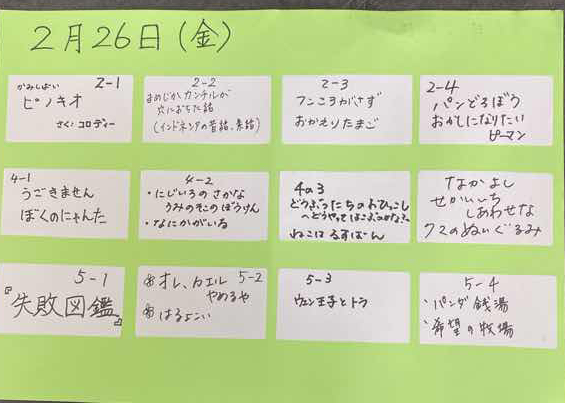 2月26日(金)
かみしばい 2-1
ピノキオ
さく:コロディー
2-2
まめじかカンチルが
穴におちた話
(インドネシアの昔話、素話)
2-3
フンころがさず
おかえりたまご
2-4
パンどろぼう
おかしになりたい
ピーマン
4-1
うごきません
ぼくのにゃんた
4-2
・にじいろのさかな
うみのそこのぼうけん
・なにかがいる
4の3
どうぶつたちのおひっこし
へどうやってはこぶのかな?へ
ねこはるすばん
なかよし
せかいいち
しあわせな
クマのぬいぐるみ
5-1
『失敗図鑑』
5-2
オレ、カエル
やめるや
はるよこい
5-3
ウェン王子とトラ
5-4
・パンダ銭湯
・希望の牧場